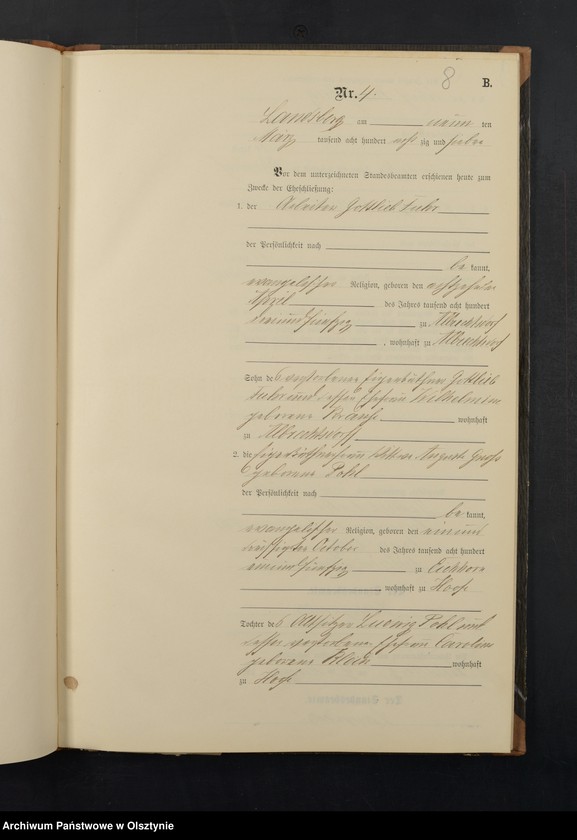 8
B.
Nr. 4.
Landsberg am neun ten
März tausend acht hundert acht zig und sieben
Vor dem unterzeichneten Standesbeamten erschienen heute zum
Zwecke der Eheschließung:
1. der Arbeiter Gottlieb
der Persönlichkeit nach
be kannt,
evangelischer Religion, geboren den achtzehnten
April des Jahres tausend acht hundert
neunundfünfzig zu Albrechtsdorf
, wohnhaft zu Albrechtsdorf
Sohn des verstorbenen Eigenkäthners Gottlieb
und dessen Ehefrau Wilhelmine
geborene Krause wohnhaft
zu Albrechtsdorf
2. die Eigenkäthnerfrau Wittwe Auguste
geborene Pohl
der Persönlichkeit nach
be kannt,
evangelischer Religion, geboren den einund
dreißigsten October des Jahres tausend acht hundert
zu Eichhorn
wohnhaft zu Hoofe
Tochter des Altsitzers Ludwig Pohl und
dessen verstorbenen Ehefrau Caroline
geborene Klein wohnhaft
zu Hoofe
Archiwum Państwowe w Olsztynie